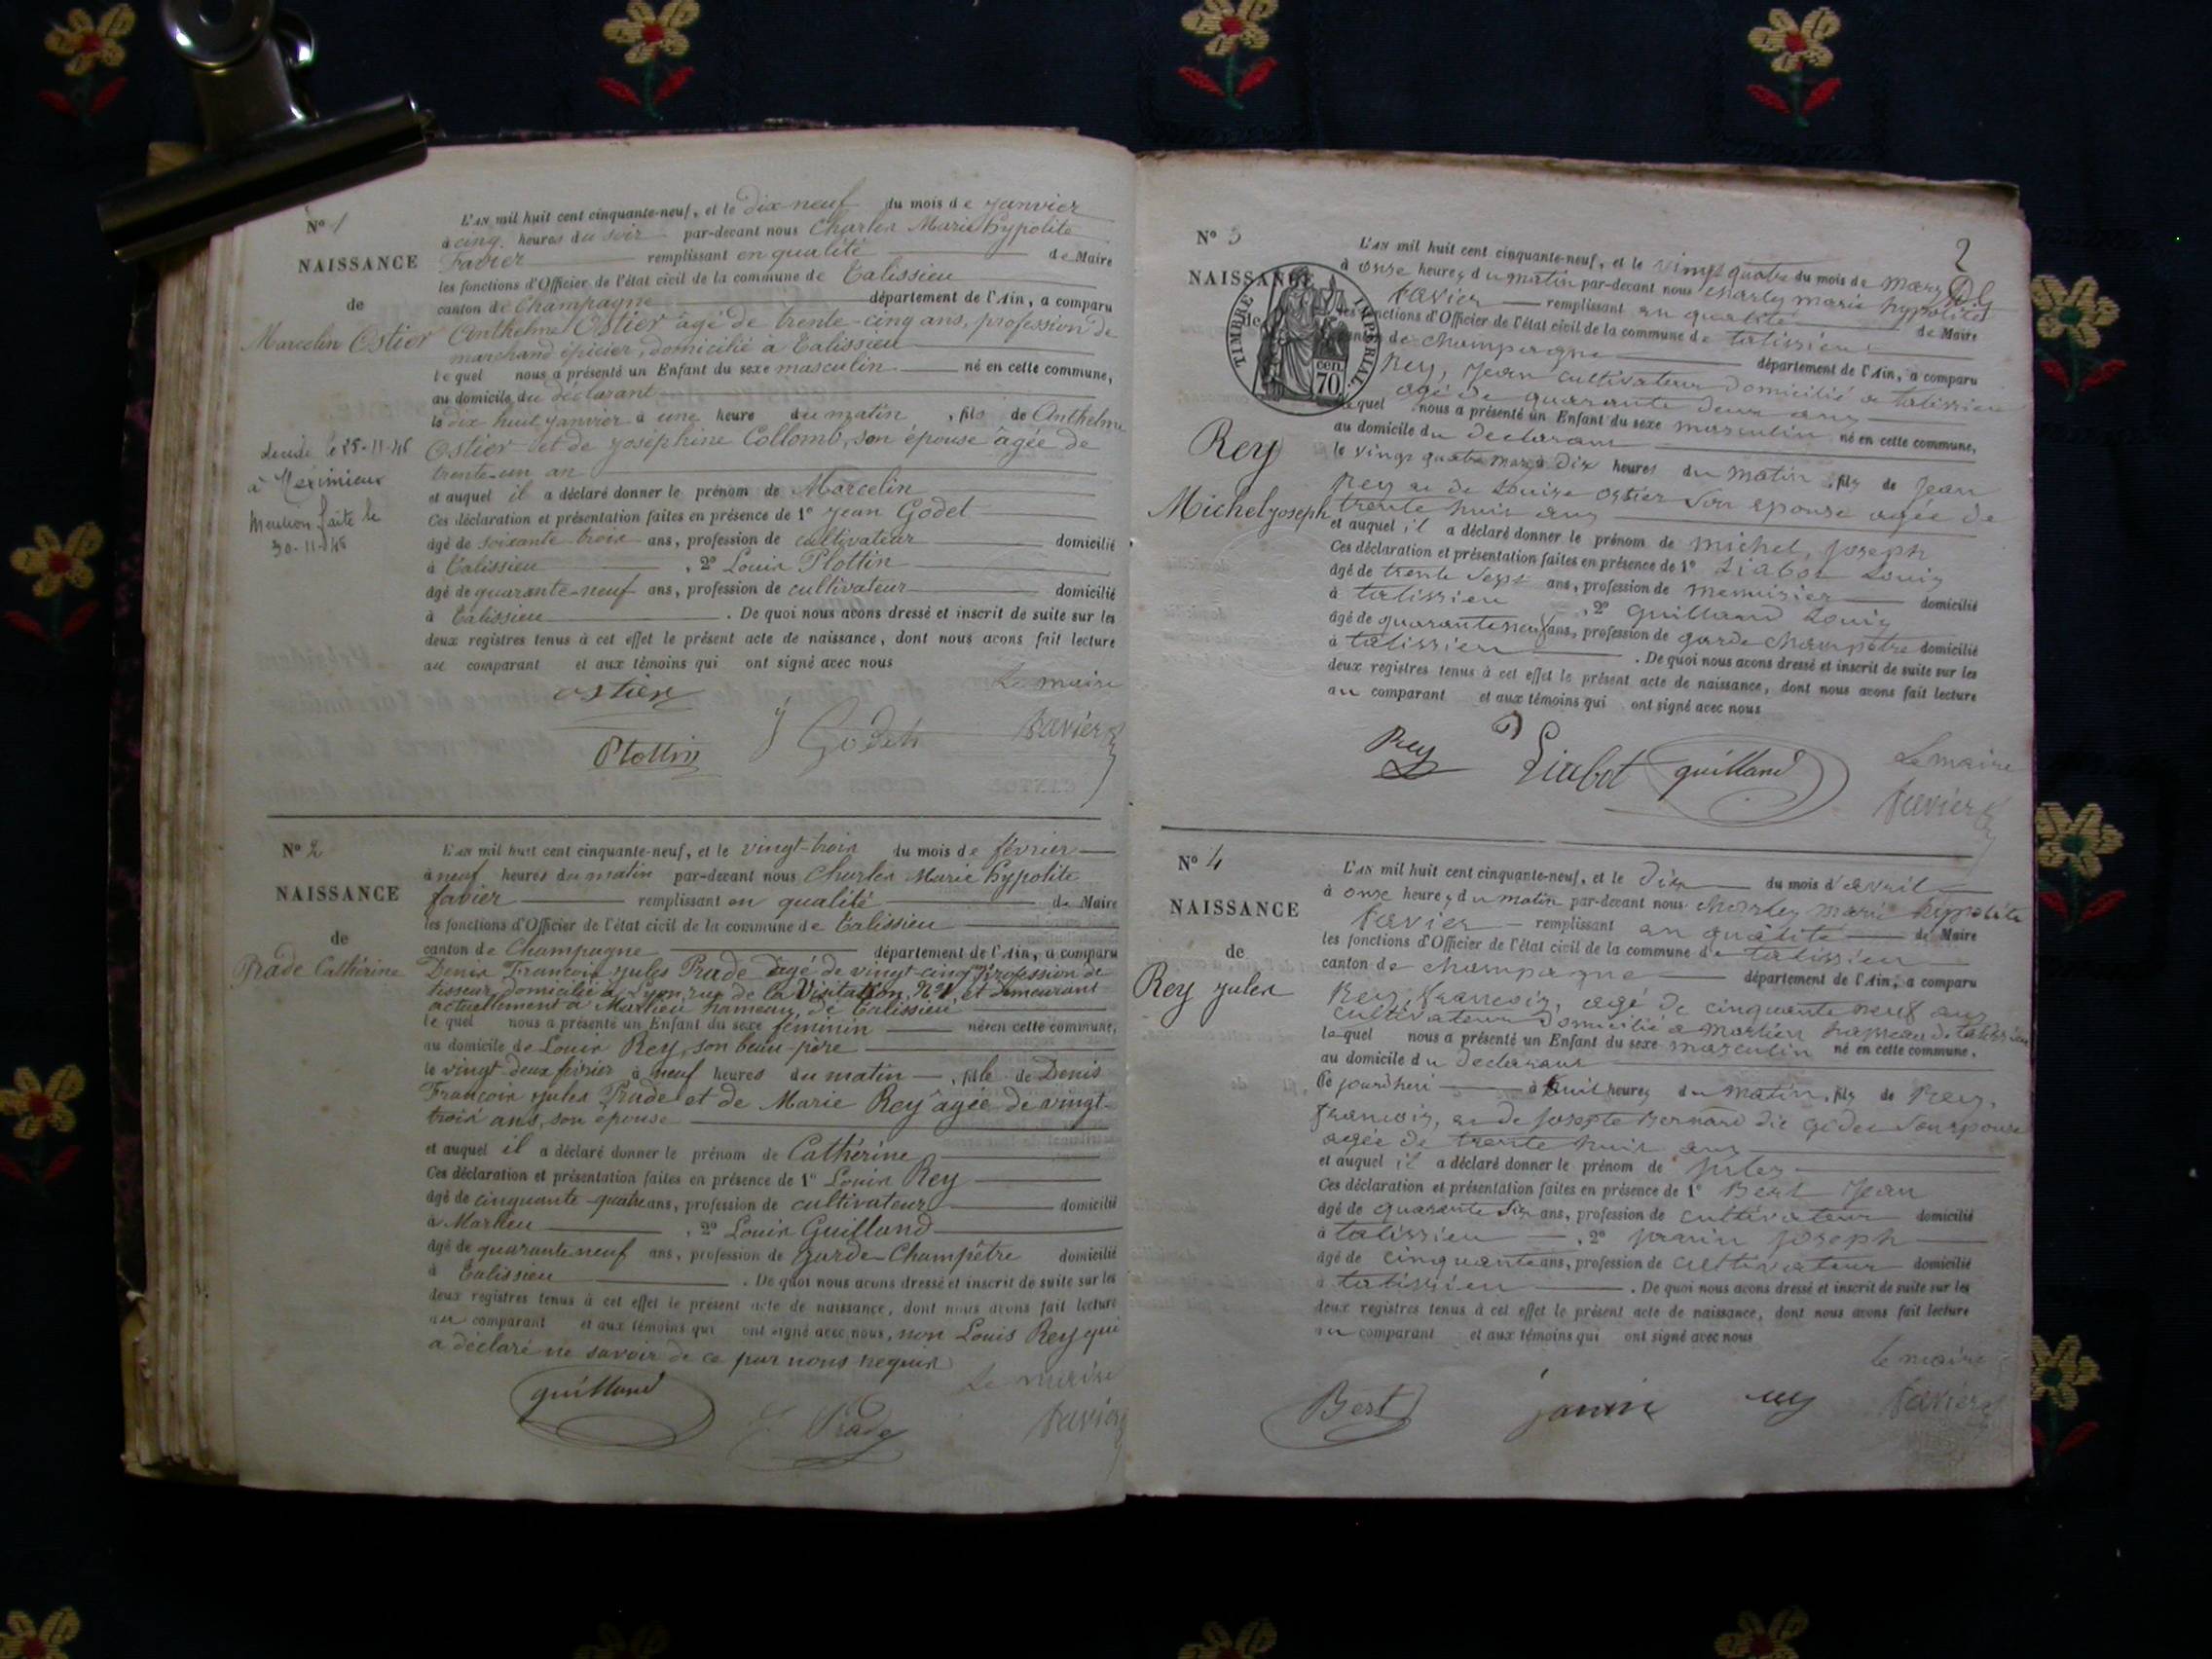 N° 1
NAISSANCE
de
Marcelin Ostier
décédé le 25-11-45
à Meximieux
Mention faite le
30-11-45
L'AN mil huit cent cinquante-neuf, et le dix neuf du mois de janvier
à cinq heures du soir par-devant nous Charles Marie hypolite
Favier remplissant en qualité de Maire
les fonctions d'Officier de l'état civil de la commune de Talissieu
canton de Champagne département de l'Ain, a comparu
Anthelme Ostier âgé de trente-cinq ans, profession de
marchand épicier, domicilié à Talissieu
lequel nous a présenté un Enfant du sexe masculin né en cette commune,
au domicile du déclarant
le dix huit janvier à une heure du matin, fils de Anthelme
Ostier et de joséphine Collomb, son épouse âgée de
trente-un an
et auquel il a déclaré donner le prénom de Marcelin
Ces déclaration et présentation faites en présence de 1° jean Godet
âgé de soixante trois ans, profession de cultivateur domicilié
à Talissieu, 2° Louis Plottin
âgé de quarante-neuf ans, profession de cultivateur domicilié
à Talissieu. De quoi nous avons dressé et inscrit de suite sur les
deux registres tenus à cet effet le présent acte de naissance, dont nous avons fait lecture
au comparant et aux témoins qui ont signé avec nous
ostier Le maire
Plottin J Godet Favier
N° 2
NAISSANCE
de
Prade Cathérine
L'AN mil huit cent cinquante-neuf, et le vingt-trois du mois de février
à neuf heures du matin par-devant nous Charles Marie hypolite
favier remplissant en qualité de Maire
les fonctions d'Officier de l'état civil de la commune de Talissieu
canton de Champagne département de l'Ain, a comparu
Denis François jules Prade âgé de vingt-cinq profession de
tisseur domicilié à Lyon, rue de la Visitation, et demeurant
actuellement à Marlieu hameau, de Talissieu
lequel nous a présenté un Enfant du sexe féminin né en cette commune,
au domicile de Louis Rey, son beau-père
le vingt-deux février à neuf heures du matin, fille de Denis
François jules Prade et de Marie Rey âgée de vingt-
trois ans, son épouse
et auquel il a déclaré donner le prénom de Cathérine
Ces déclaration et présentation faites en présence de 1° Louis Rey
âgé de cinquante-quatre ans, profession de cultivateur domicilié
à Marlieu, 2° Louis Guilland
âgé de quarante neuf ans, profession de garde-Champêtre domicilié
à Talissieu. De quoi nous avons dressé et inscrit de suite sur les
deux registres tenus à cet effet le présent acte de naissance, dont nous avons fait lecture
au comparant et aux témoins qui ont signé avec nous, non Louis Rey qui
a déclaré ne savoir de ce par nous requis
guilland Prade Le maire
Favier
2
N° 3
NAISSANCE
de
Rey
Michel joseph
TIMBRE IMPERIAL
70 cen.
L'AN mil huit cent cinquante-neuf, et le vingt quatre du mois de mars
à onze heures du matin par-devant nous charles marie hypolite
favier remplissant en qualité de Maire
les fonctions d'Officier de l'état civil de la commune de talissieu
canton de champagne département de l'Ain, a comparu
Rey, jean cultivateur domicilié a talissieu
agé de quarante deux ans
lequel nous a présenté un Enfant du sexe masculin né en cette commune,
au domicile du declarant
le vingt quatre mars à dix heures du matin, fils de jean
Rey et de Louise ostier son epouse agée de
trente huit ans
et auquel il a déclaré donner le prénom de michel, joseph
Ces déclaration et présentation faites en présence de 1° Liabot Louis
âgé de trente sept ans, profession de menuisier domicilié
à talissieu, 2° guilland Louis
âgé de quarante neuf ans, profession de garde champêtre domicilié
à talissieu. De quoi nous avons dressé et inscrit de suite sur les
deux registres tenus à cet effet le présent acte de naissance, dont nous avons fait lecture
au comparant et aux témoins qui ont signé avec nous
Rey Liabot guilland Le maire
favier
N° 4
NAISSANCE
de
Rey jules
L'AN mil huit cent cinquante-neuf, et le dix du mois d'avril
à onze heures du matin par-devant nous charles marie hippolite
favier remplissant en qualité de Maire
les fonctions d'Officier de l'état civil de la commune de talissieu
canton de champagne département de l'Ain, a comparu
Rey, francois, agé de cinquante neuf ans
cultivateur domicilié a marlieu hameau de talissieu
lequel nous a présenté un Enfant du sexe masculin né en cette commune,
au domicile du declarant
le jourdhui à huit heures du matin, fils de Rey,
francois, et de josepte Bernard dit godet son epouse
agée de trente huit ans
et auquel il a déclaré donner le prénom de jules
Ces déclaration et présentation faites en présence de 1° Bert jean
âgé de quarante six ans, profession de cultivateur domicilié
à talissieu, 2° janin joseph
âgé de cinquante ans, profession de cultivateur domicilié
à talissieu. De quoi nous avons dressé et inscrit de suite sur les
deux registres tenus à cet effet le présent acte de naissance, dont nous avons fait lecture
au comparant et aux témoins qui ont signé avec nous
le maire
Bert janin rey favier